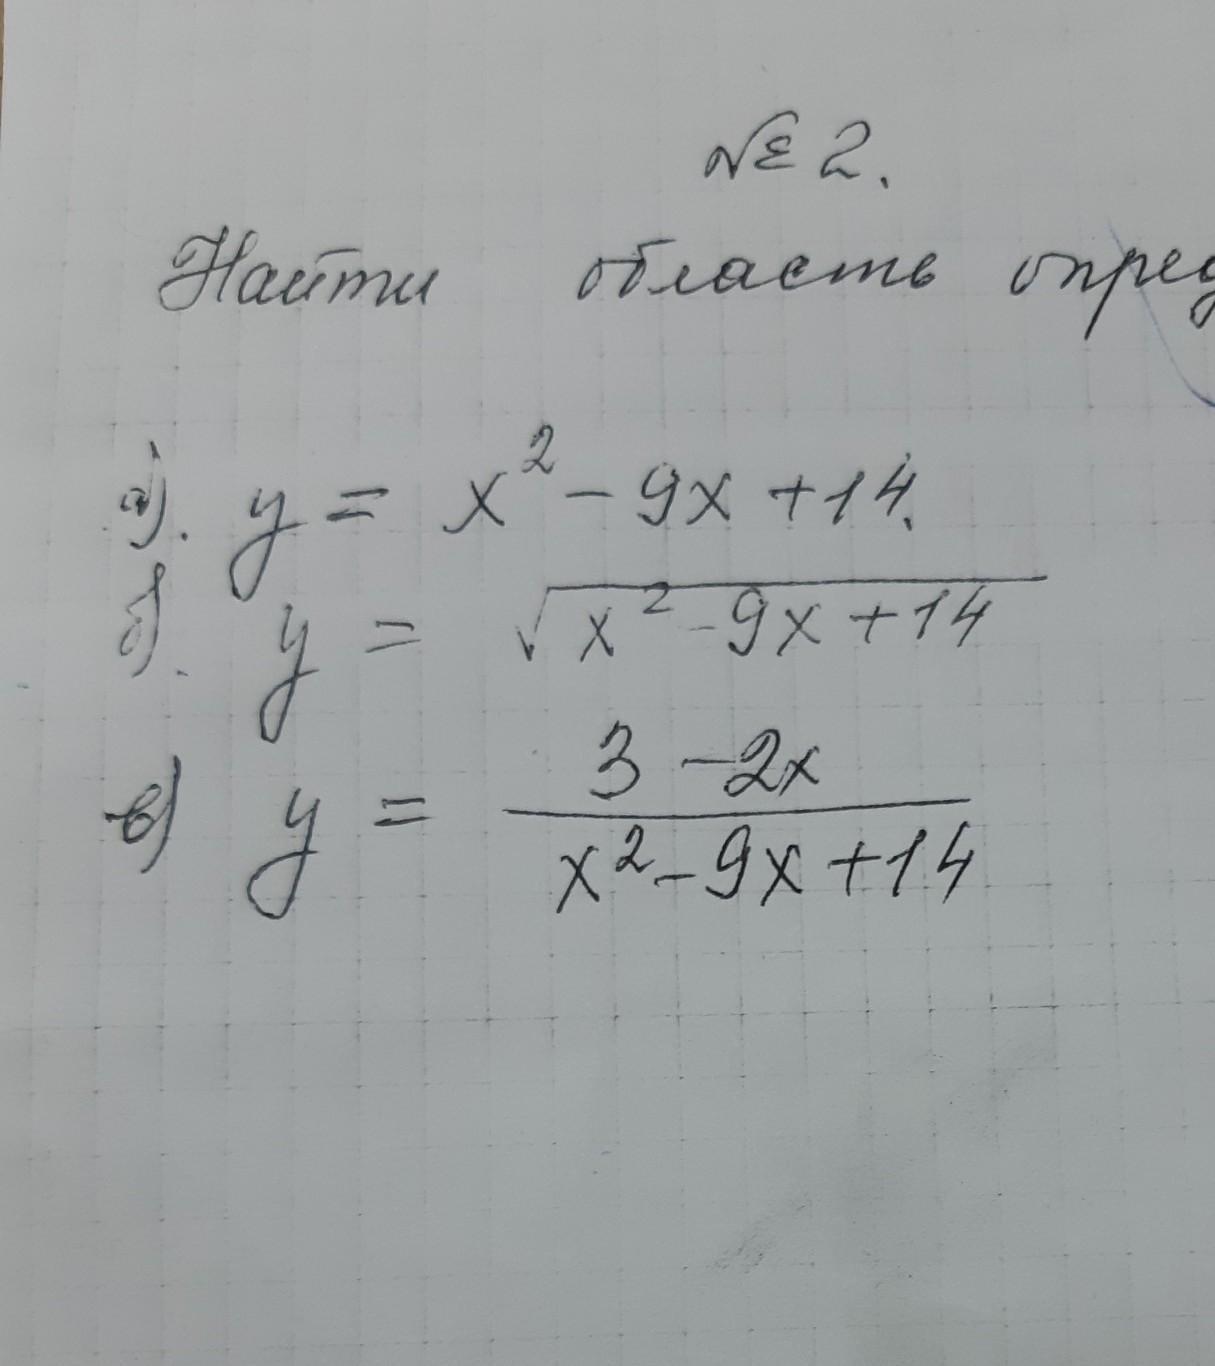 № 2.
Найти область опред
а). y = x² - 9x + 14.
б). y = √(x² - 9x + 14)
в) y = (3 - 2x)/(x² - 9x + 14)